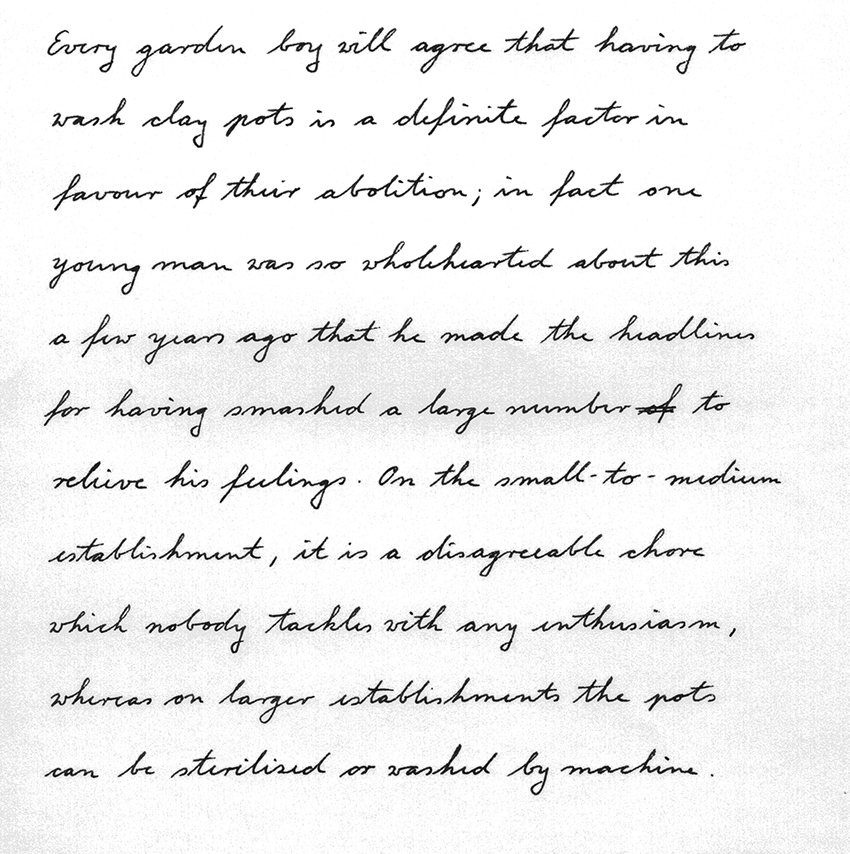 Every garden boy will agree that having to
wash clay pots is a definite factor in
favour of their abolition; in fact one
young man was so wholehearted about this
a few years ago that he made the headlines
for having smashed a large number of to
relieve his feelings. On the small-to-medium
establishment, it is a disagreeable chore
which nobody tackles with any enthusiasm,
whereas on larger establishments the pots
can be sterilised or washed by machine.